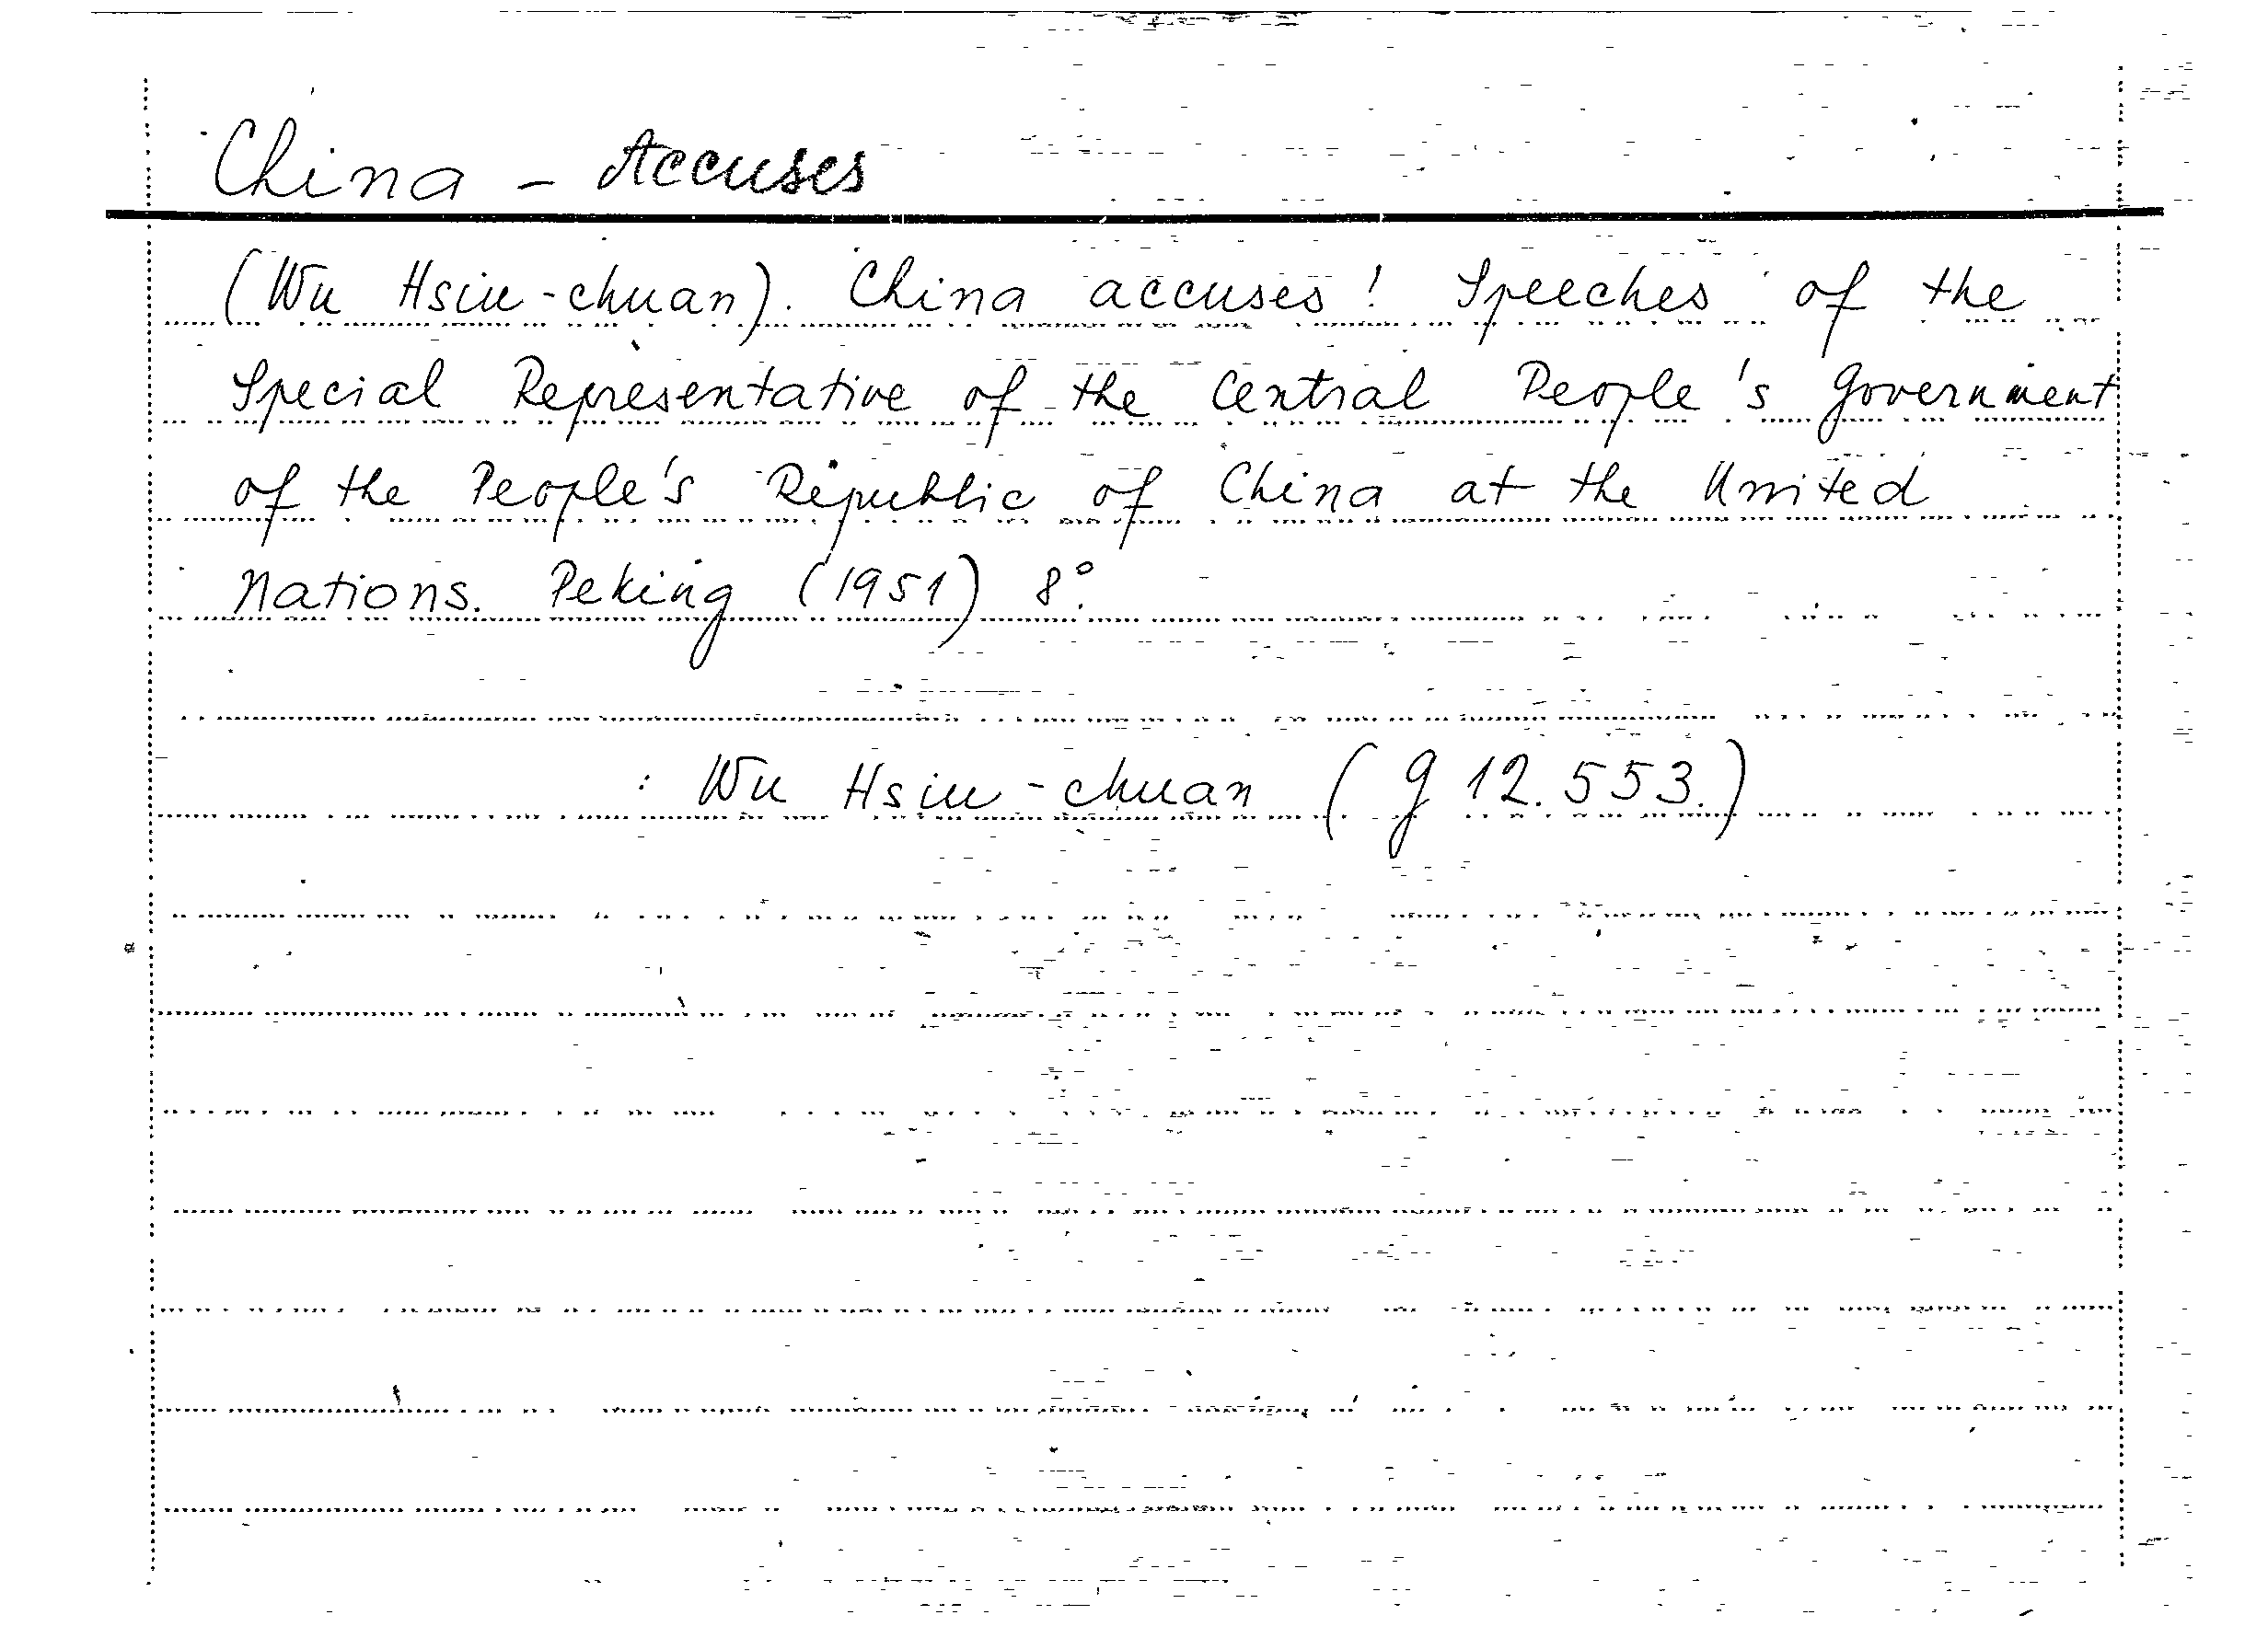 China - Accuses
(Wu Hsiu-chuan). China accuses! Speeches of the
Special Representative of the Central People's Government
of the People's Republic of China at the United
Nations. Peking (1951) 8°.
: Wu Hsiu-chuan (g 12.553.)